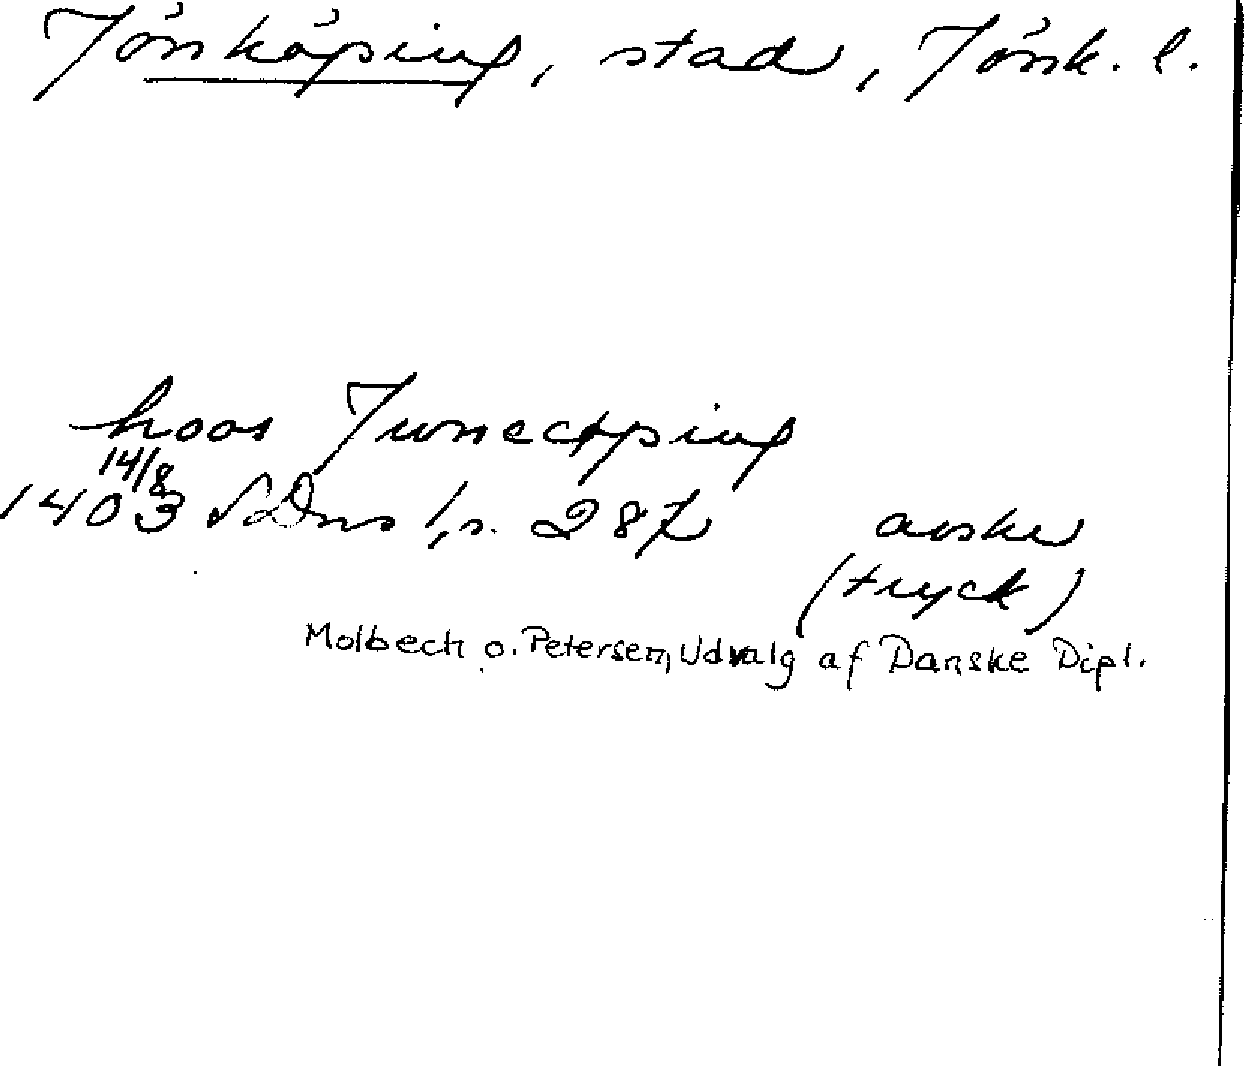 Jönköping, stad, Jönk. l.
hoos Junecøping
14/8
1403 SDns 1, s. 287 avskr
(tryck)
Molbech o. Petersen, Udvalg af Danske Dipl.